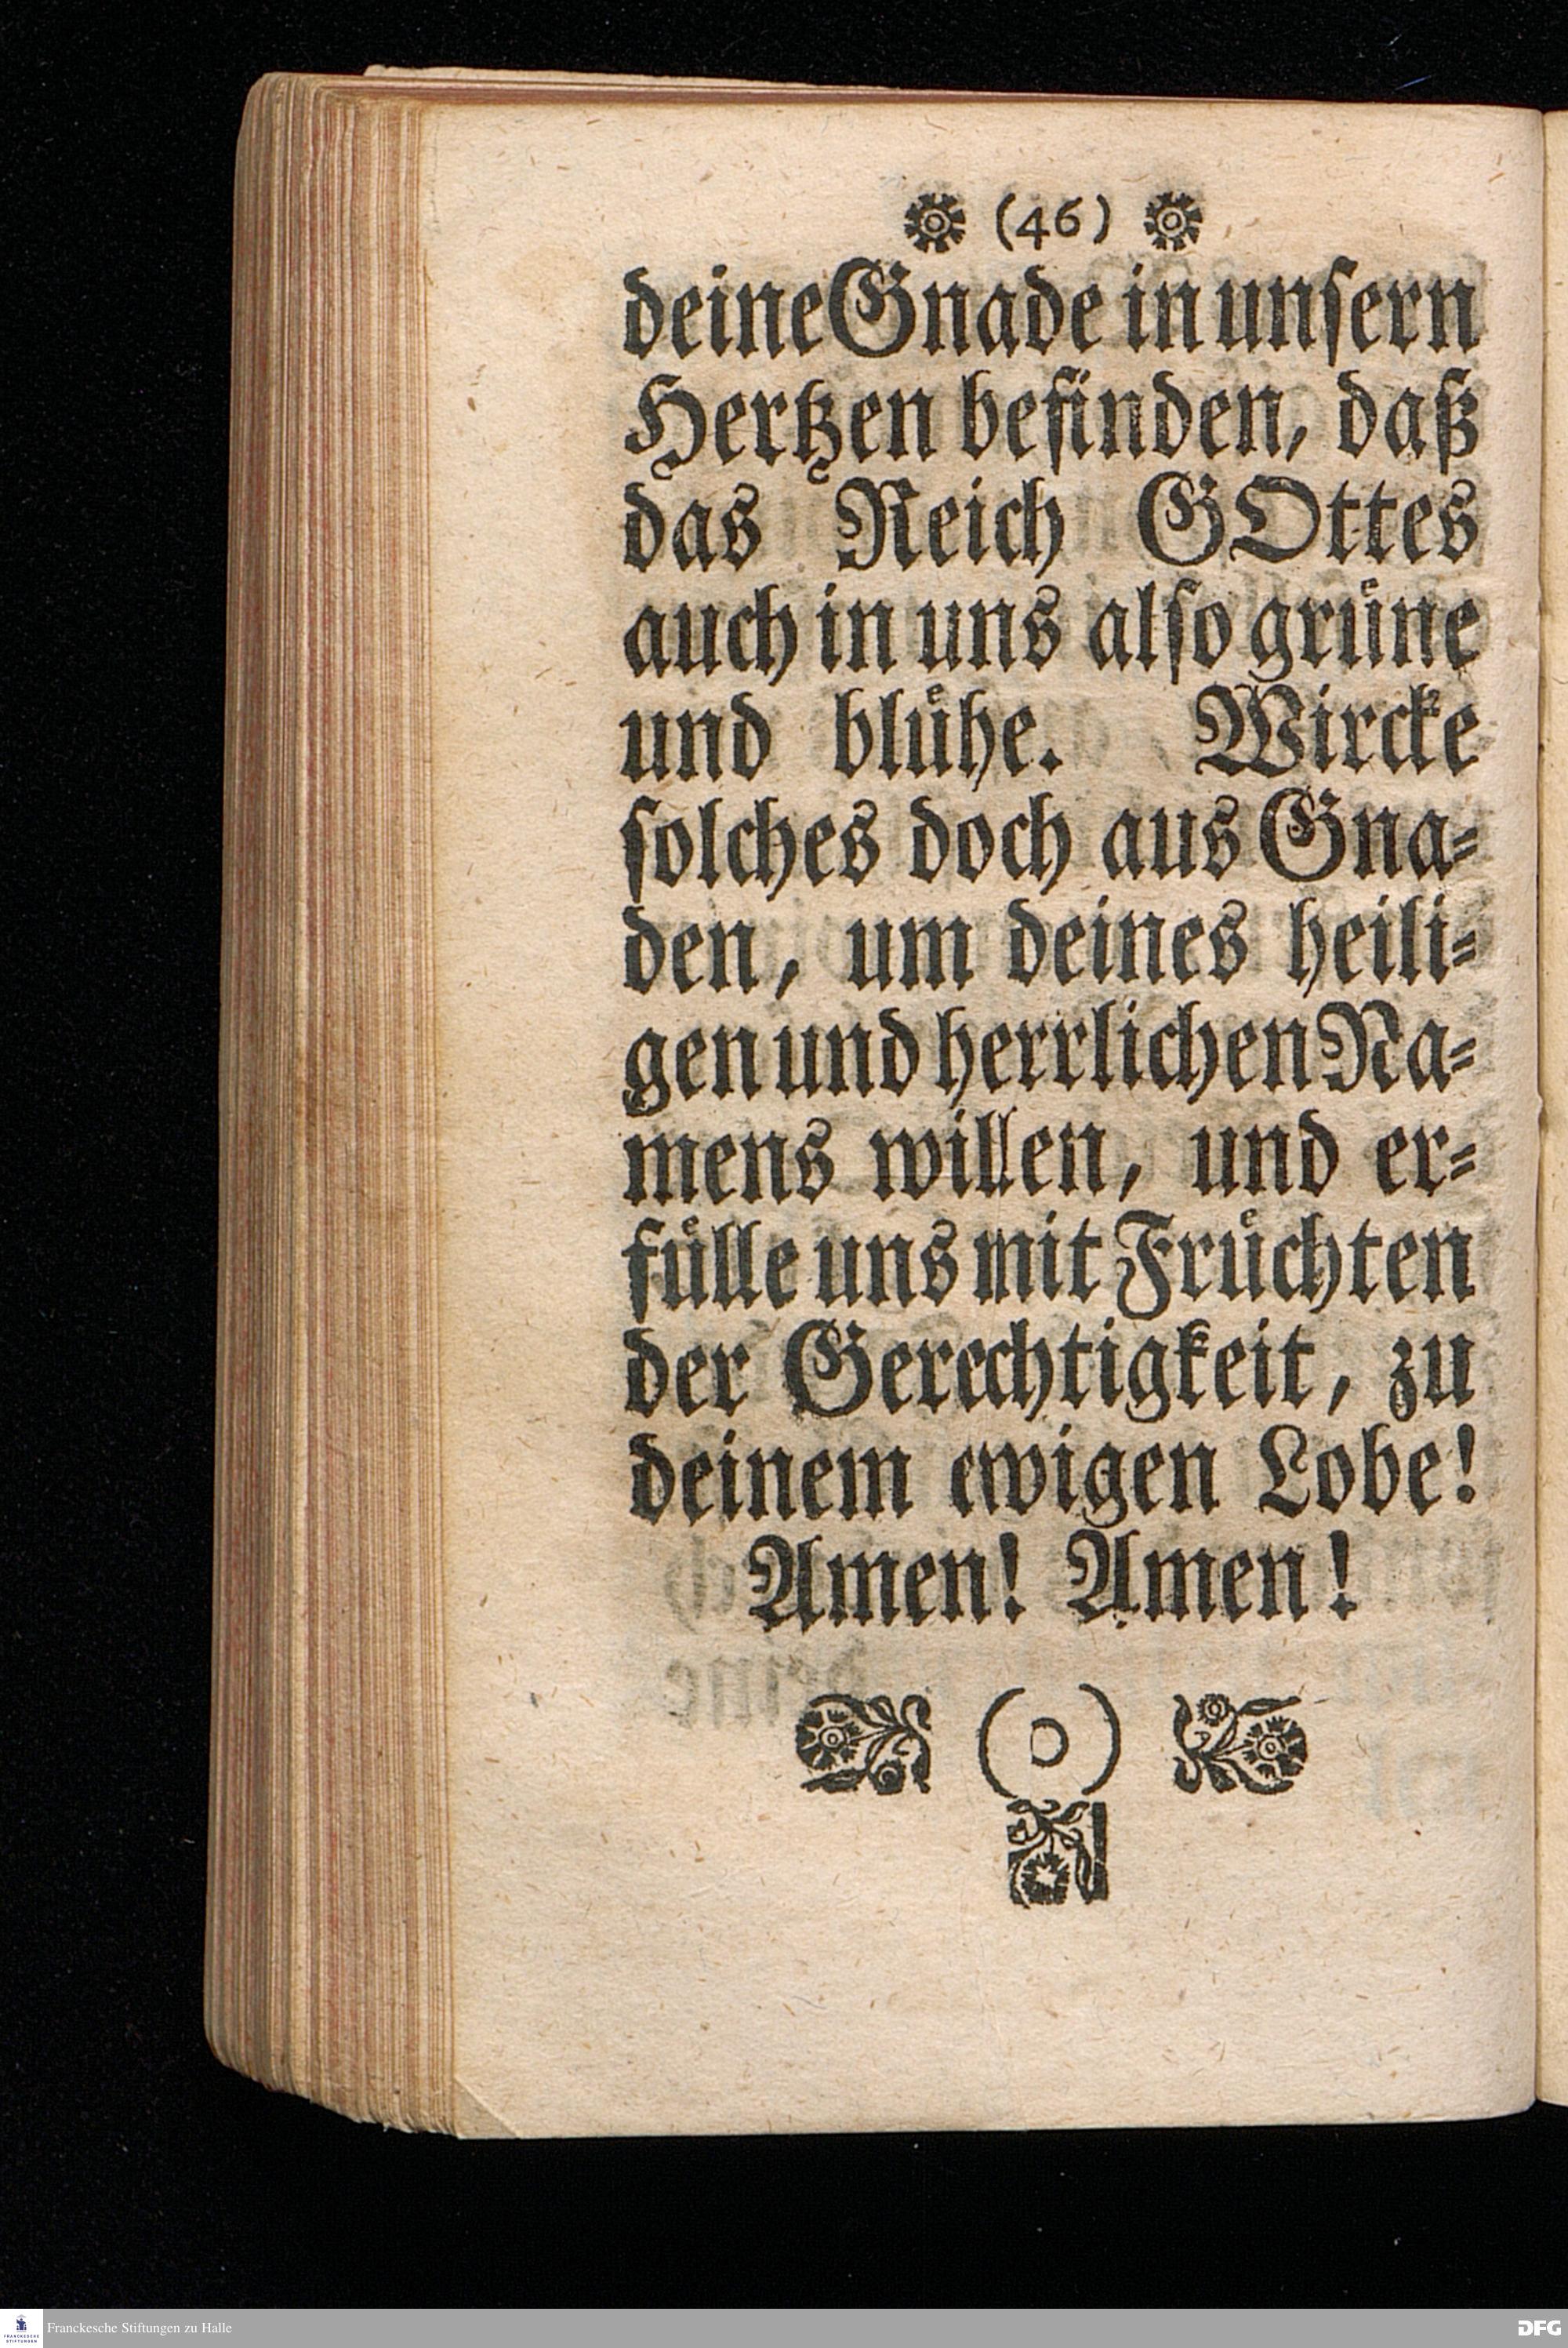 (46)
deine Gnade in unſern
Hertzen befinden, daß
das Reich GOttes
auch in uns alſo gruͤne
und bluͤhe. Wircke
ſolches doch aus Gna⸗
den, um deines heili⸗
gen und herrlichen Na⸗
mens willen, und er⸗
fuͤlle uns mit Fruͤchten
der Gerechtigkeit, zu
deinem ewigen Lobe!
Amen! Amen!
(o)
Franckesche Stiftungen zu Halle
FRANCKESCHE
STIFTUNGEN
DFG